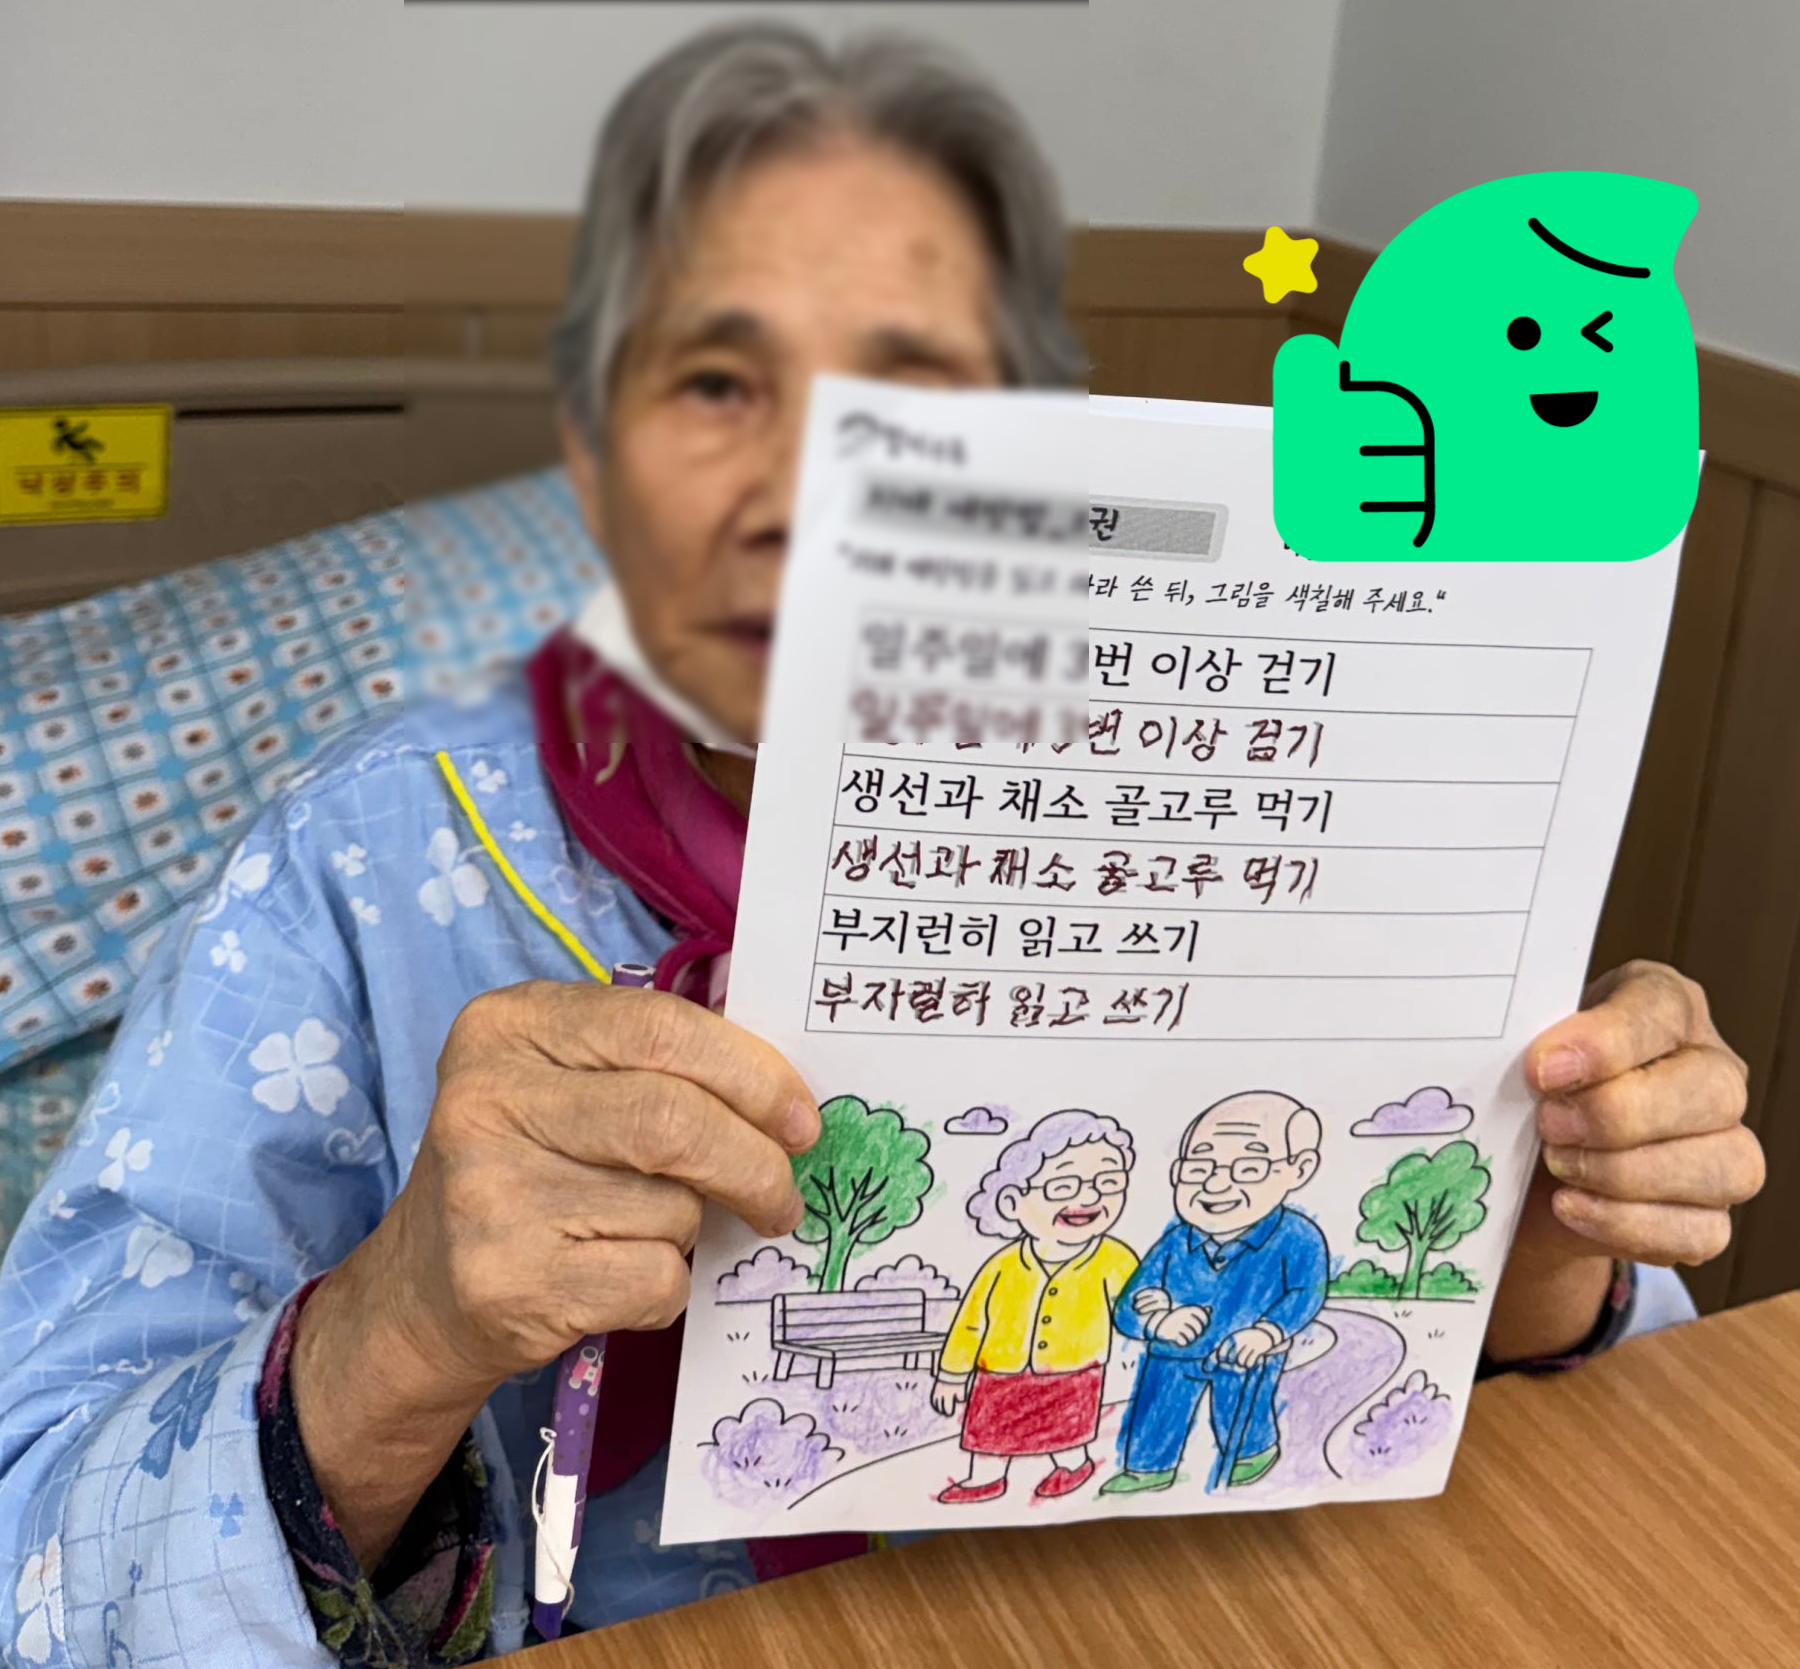 낙상주의
권
쓴 뒤, 그림을 색칠해 주세요."
일주일에 3번 이상 걷기
일주일에 3번 이상 걷기
생선과 채소 골고루 먹기
생선과 채소 골고루 먹기
부지런히 읽고 쓰기
부자런하 읽고 쓰기